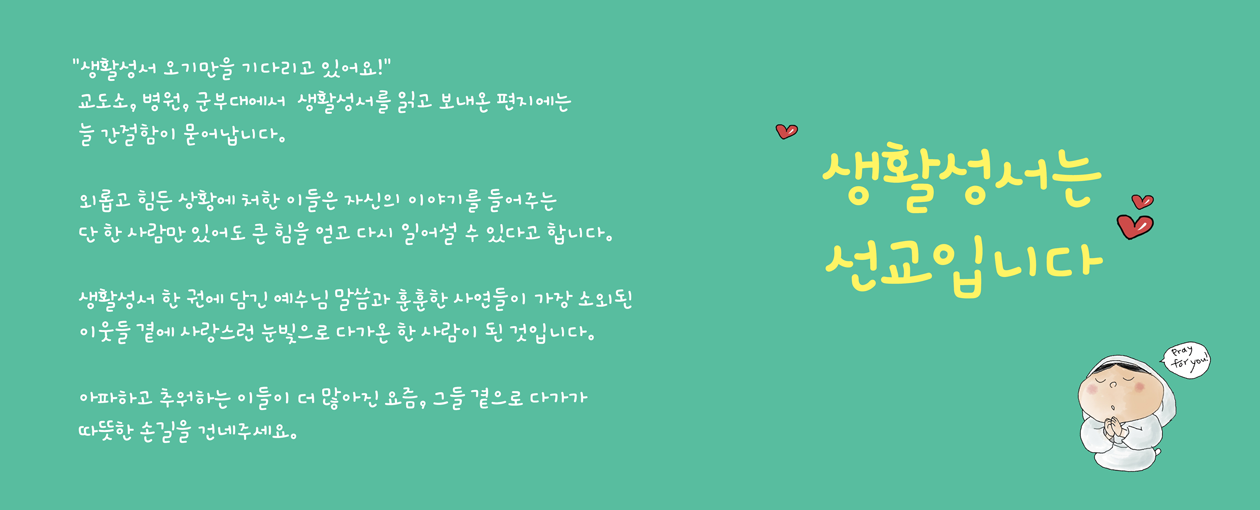 "생활성서 오기만을 기다리고 있어요!"
교도소, 병원, 군부대에서 생활성서를 읽고 보내온 편지에는
늘 간절함이 묻어납니다.
외롭고 힘든 상황에 처한 이들은 자신의 이야기를 들어주는
단 한 사람만 있어도 큰 힘을 얻고 다시 일어설 수 있다고 합니다.
생활성서 한 권에 담긴 예수님 말씀과 훈훈한 사연들이 가장 소외된
이웃들 곁에 사랑스런 눈빛으로 다가온 한 사람이 된 것입니다.
아파하고 추워하는 이들이 더 많아진 요즘, 그들 곁으로 다가가
따뜻한 손길을 건네주세요.
생활성서는
선교입니다
Pray
for you!